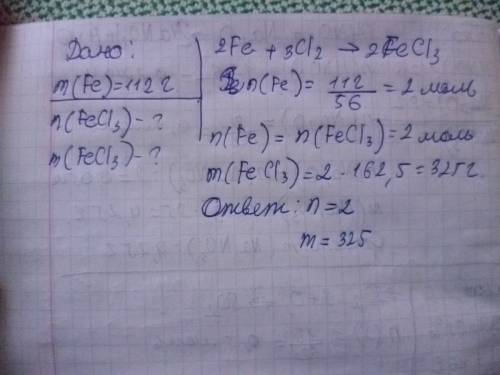 Дано:
m(Fe)=112 г
n(FeCl3)-?
m(FeCl3)-?
2Fe + 3Cl2 → 2FeCl3
n(Fe)= 112/56 = 2 моль
n(Fe)= n(FeCl3)=2 моль
m(FeCl3)=2 · 162,5=325 г.
Ответ: n=2
m=325